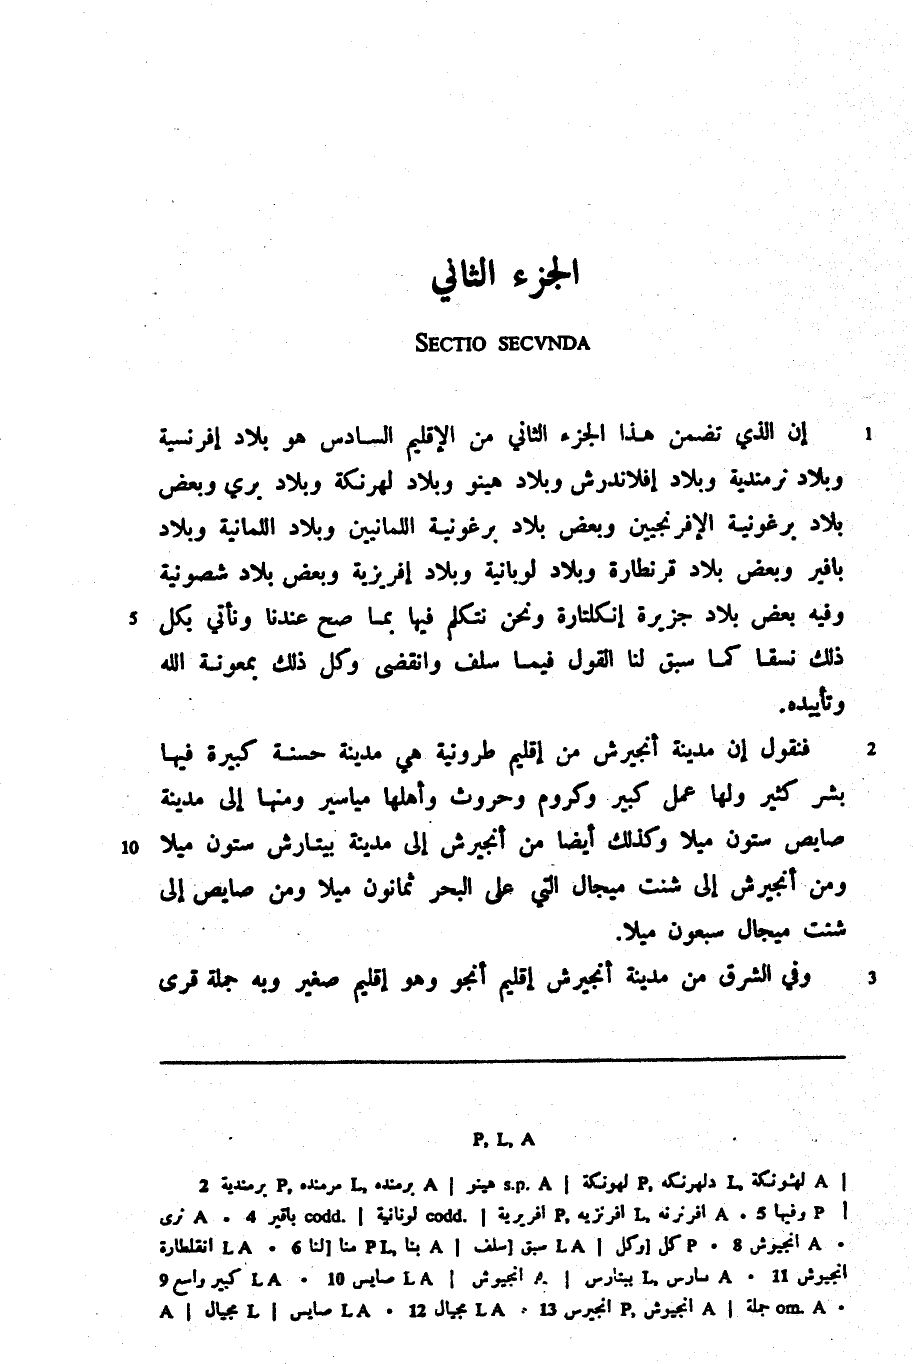 الجزء الثاني
SECTIO SECVNDA
1 إن الذي تضمن هذا الجزء الثاني من الإقليم السادس هو بلاد إفرنسية
وبلاد نرمندية وبلاد إفلاندرش وبلاد هينو وبلاد لهرنكة وبلاد بري وبعض
بلاد برغونية الإفرنجيين وبعض بلاد برغونية اللمانيين وبلاد اللمانية وبلاد
بافير وبعض بلاد قرنطارة وبلاد لوبانية وبلاد إفريزية وبعض بلاد شصونية
5 وفيه بعض بلاد جزيرة إنكلتارة ونحن نتكلم فيها بما صح عندنا ونأتي بكل
ذلك نسقا كما سبق لنا القول فيما سلف وانقضى وكل ذلك بمعونة الله
وتأييده.
2 فنقول إن مدينة أنجيرش من إقليم طرونية هي مدينة حسنة كبيرة فيها
بشر كثير ولها عمل كبير وكروم وحروث وأهلها مياسير ومنها إلى مدينة
10 صايص ستون ميلا وكذلك أيضا من أنجيرش إلى مدينة بيتارش ستون ميلا
ومن أنجيرش إلى شنت ميجال التي على البحر ثمانون ميلا ومن صايص إلى
شنت ميجال سبعون ميلا.
3 وفي الشرق من مدينة أنجيرش إقليم أنجو وهو إقليم صغير وبه جملة قرى
P, L, A
2 برمندية P, مرمنده L, برمنده A | هينو s.p. A | لهونكة P, دلهرنكه L, لهثونكة A |
نرى A • 4 باقير codd. | لونانية codd. | افريرية P, افرنزيه L, افرنزنه A • 5 وفيها P |
انقلطارة L A • 6 لنا] منا P L, بنا A | سلف] سبق L A | وكل] كل P • 8 انجيوش A •
9 كبير واسع L A • 10 صايس L A | انجيوش A | بيتارس L, سارس A • 11 انجيوش
A | مجيال L | صايس L A • 12 مجيال L A • 13 انجيرس P, انجيوش A | جملة om. A •